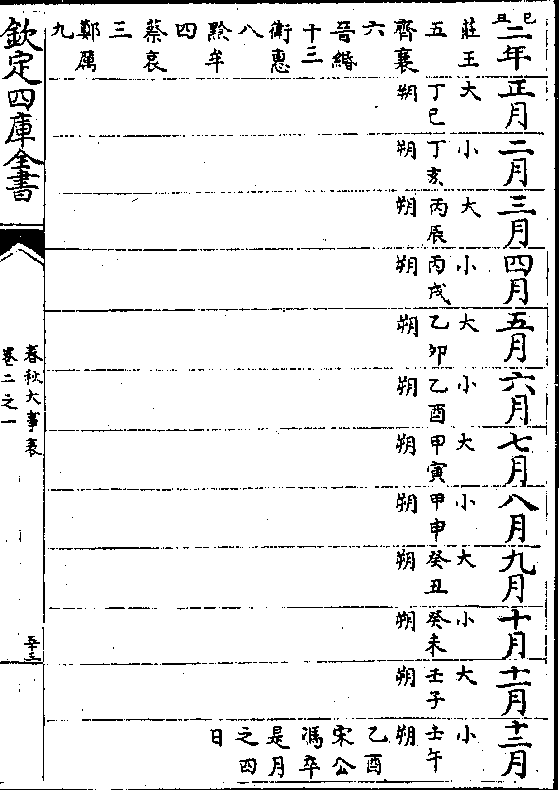 己丑
二年
莊王
五
齊襄
六
晉緡
十三
衛惠
八
黔牟
四
蔡哀
三
鄭厲
九
正月
大
丁巳
朔
二月
小
丁亥
朔
三月
大
丙辰
朔
四月
小
丙戌
朔
五月
大
乙卯
朔
六月
小
乙酉
朔
七月
大
甲寅
朔
八月
小
甲申
朔
九月
大
癸丑
朔
十月
小
癸未
朔
十一月
大
壬子
朔
十二月
小
壬午
朔
乙酉
宋公
馮卒
是月
之四
日
欽定四庫全書
春秋大事表
卷二之一
五十三